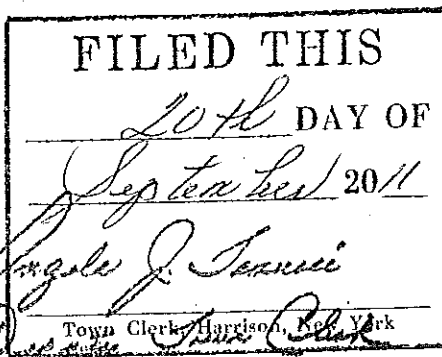 FILED THIS
20th DAY OF
September 2011
J.
Town Clerk, Harrison, New York
Town Clerk